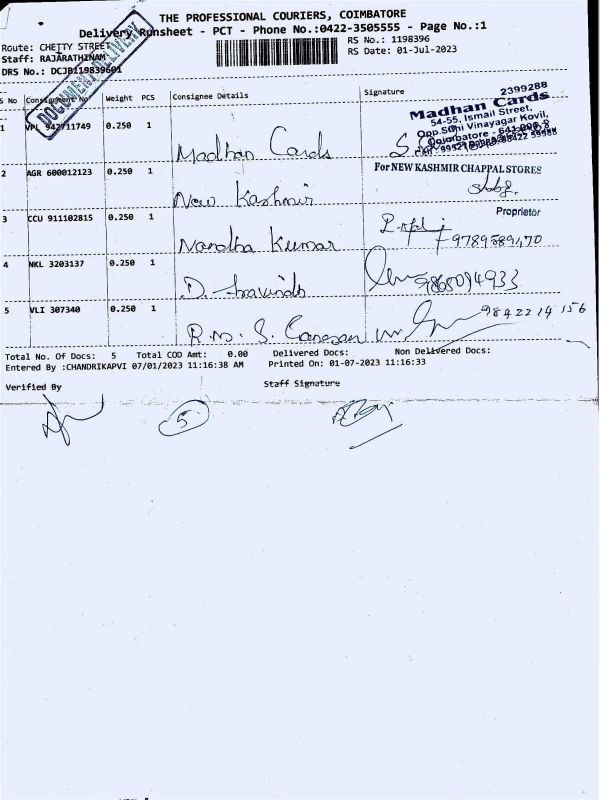 THE PROFESSIONAL COURIERS, COIMBATORE
Delivery Runsheet - PCT - Phone No.:0422-3505555 - Page No.:1
Route: CHETTY STREET
RS No.: 1198396
Staff: RAJARATHINAM
RS Date: 01-Jul-2023
DRS No.: DCJB119839601
DOCUMENT DELIVERY
S No Consignment No Weight PCS Consignee Details Signature
2399288
1 VPL 942711749 0.250 1 Madhan Cards
Madhan Cards
54-55, Ismail Street,
Opp.Sithi Vinayagar Kovil,
Coimbatore - 641 001
2 AGR 600012123 0.250 1 New Kashmir
For NEW KASHMIR CHAPPAL STORES
Proprietor
3 CCU 911102815 0.250 1 Nandha Kumar
9789589470
4 NKL 3203137 0.250 1 D. Aravindh
9865094933
5 VLI 307340 0.250 1 R.M. S. Canesan
9842214156
Total No. Of Docs: 5 Total COD Amt: 0.00 Delivered Docs: Non Delivered Docs:
Entered By :CHANDRIKAPVI 07/01/2023 11:16:38 AM Printed On: 01-07-2023 11:16:33
Verified By Staff Signature
5